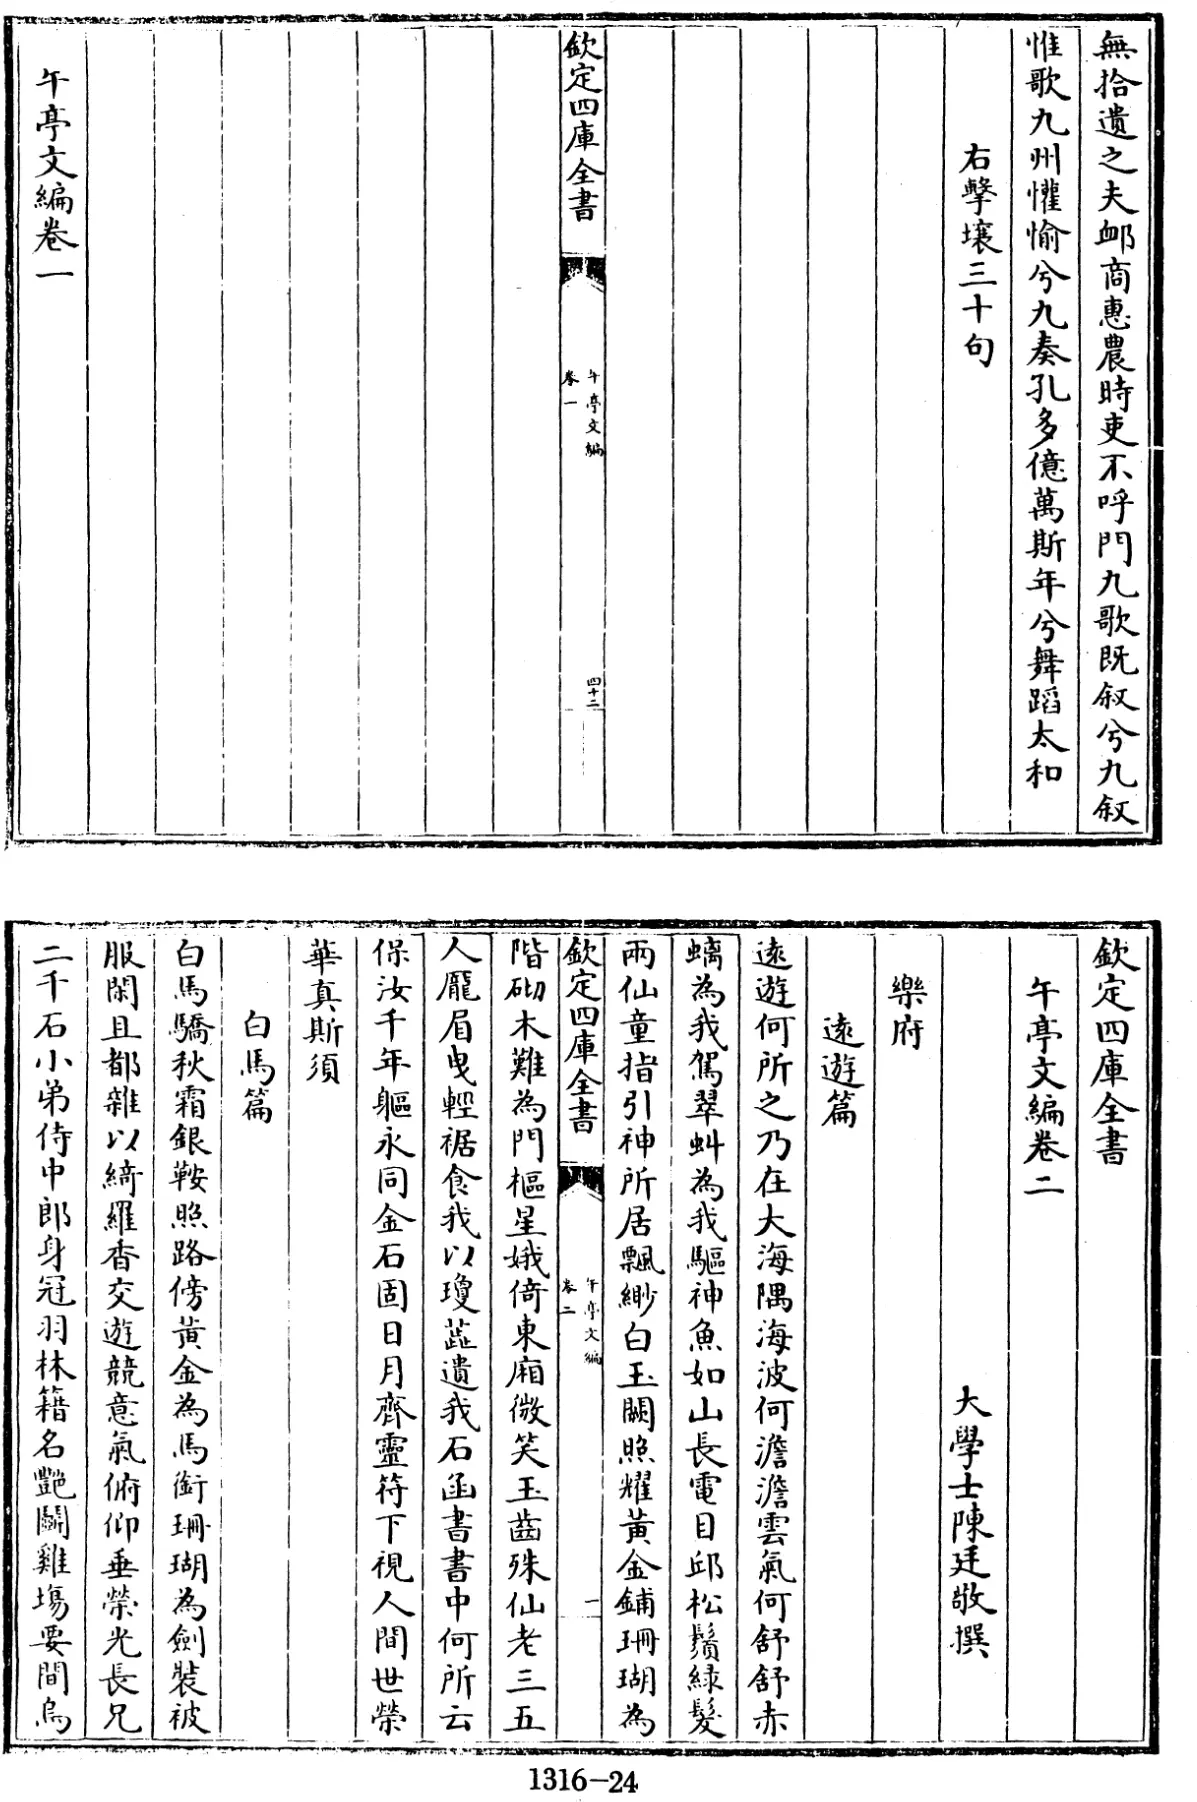 無拾遺之夫䘏商惠農時吏不呼門九歌既叙兮九叙
惟歌九州懽愉兮九奏孔多億萬斯年兮舞蹈太和
右擊壤三十句
欽定四庫全書
午亭文編
卷一
四十二
午亭文編卷一
欽定四庫全書
午亭文編卷二
大學士陳廷敬撰
樂府
遠遊篇
遠遊何所之乃在大海隅海波何澹澹雲氣何舒舒赤
螭為我駕翠虯為我驅神魚如山長電目邱松鬚緑髮
兩仙童指引神所居飄緲白玉闕照耀黄金鋪珊瑚為
欽定四庫全書
午亭文編
卷二
一
階砌木難為門樞星娥倚東廂微笑玉齒殊仙老三五
人龎眉曳輕裾食我以瓊蕋遺我石函書書中何所云
保汝千年軀永同金石固日月齊靈符下視人間世榮
華真斯須
白馬篇
白馬驕秋霜銀鞍照路傍黄金為馬銜珊瑚為劍裝被
服閑且都雜以綺羅香交遊競意氣俯仰垂榮光長兄
二千石小弟侍中郎身冠羽林籍名艶鬭雞塲要間烏
1316-24